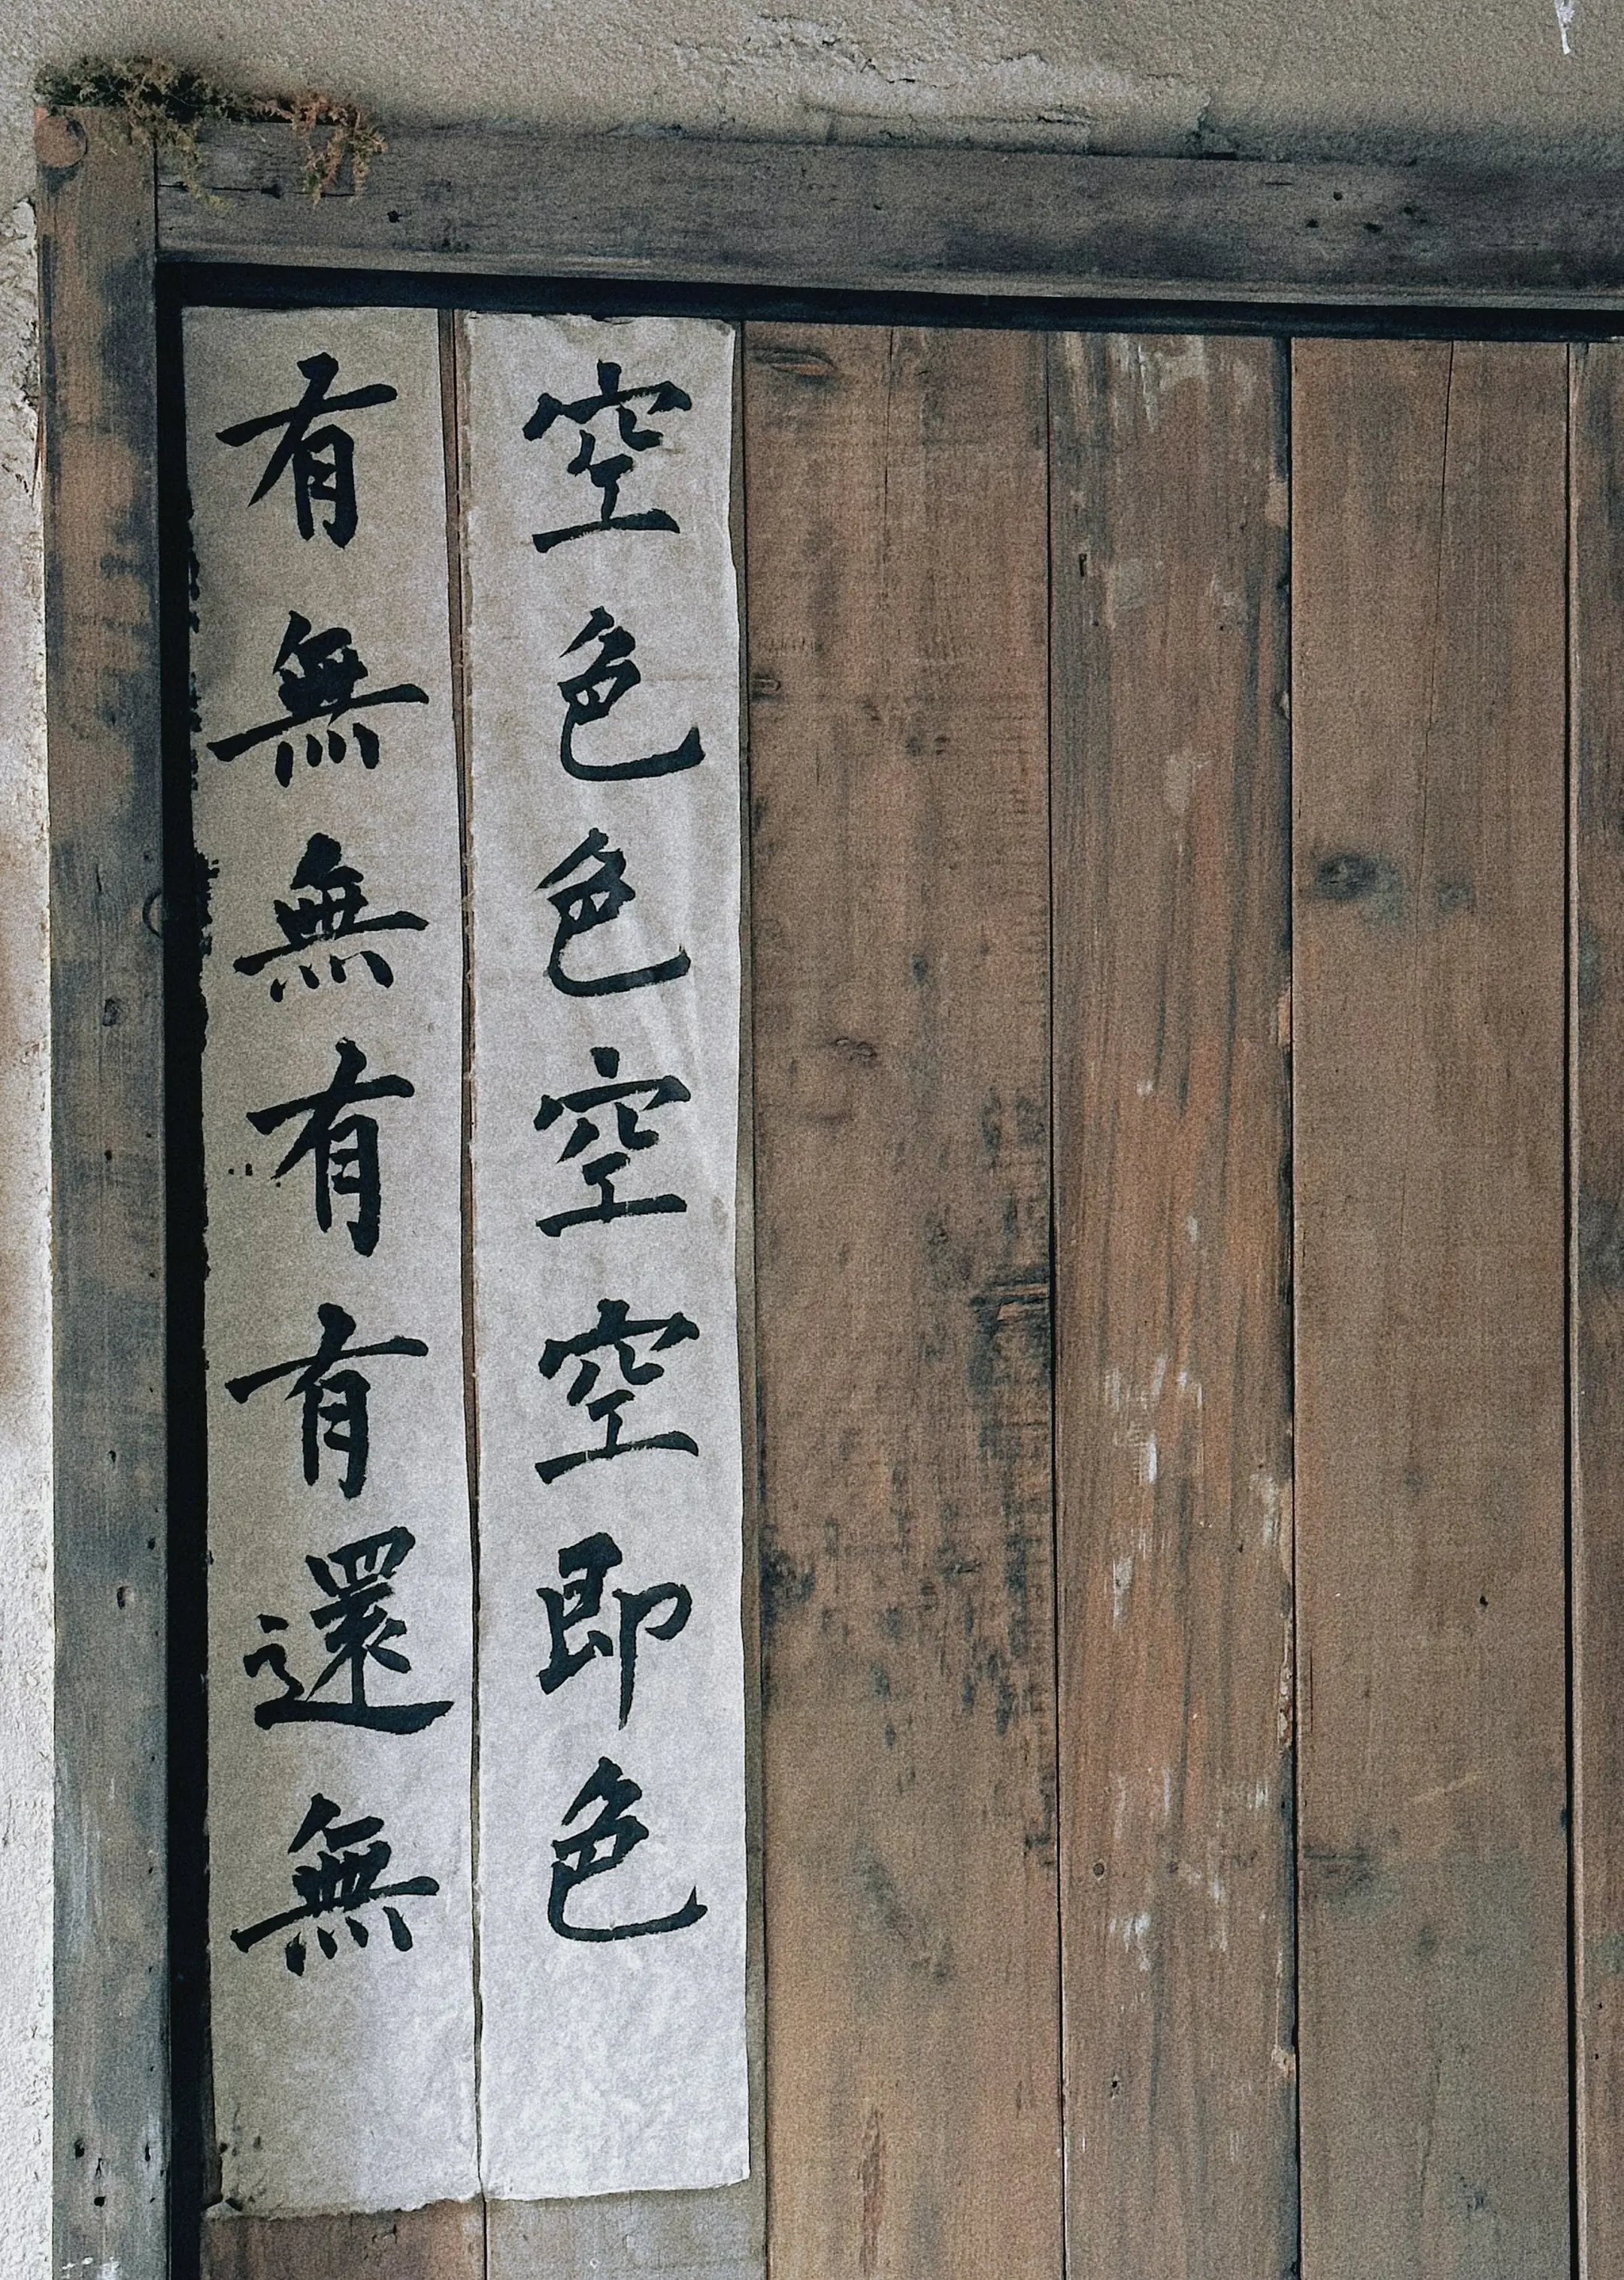 空色色空空即色
有無無有有還無